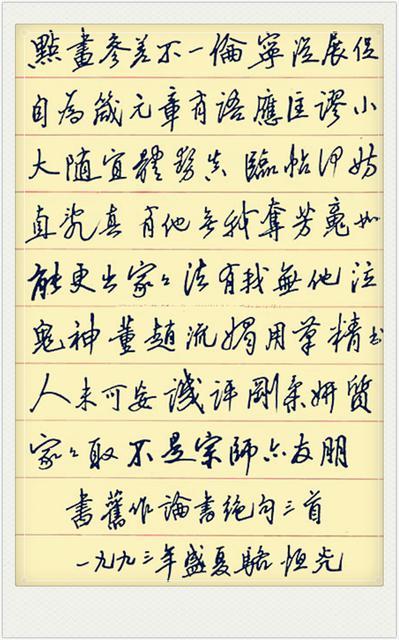 點畫參差不一倫寧從展促
自為箴元章有語應匡謬小
大隨宜體勢真臨帖何妨
直亂真有他無我奪芳魂如
能更出家〻法有我無他泣
鬼神董趙流媚用筆精
人未可妄譏評剛柔妍質
家〻取不是宗師亦友朋
書舊作論書絕句三首
一九九三年盛夏駱恒光